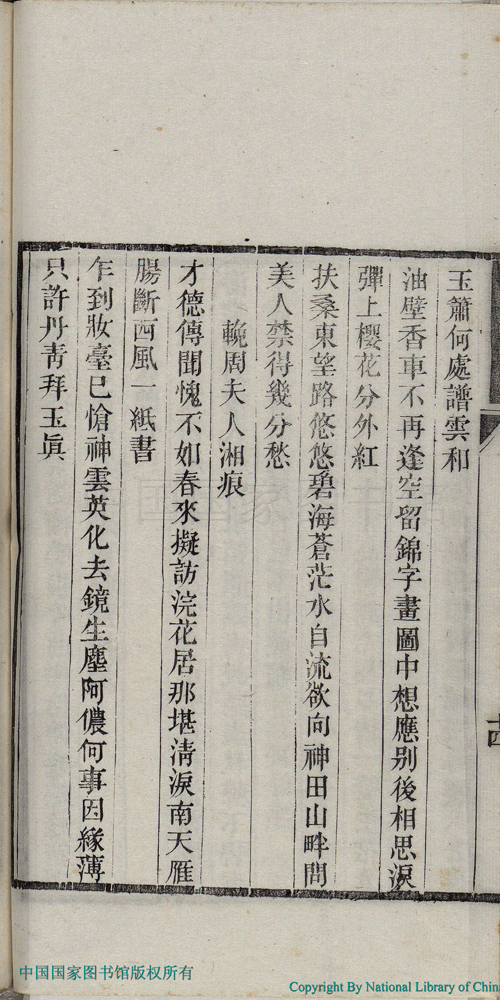 玉簫何處譜雲和
油壁香車不再逢空留錦字畫圖中想應別後相思淚
彈上櫻花分外紅
扶桑東望路悠悠碧海蒼茫水自流欲向神田山畔問
美人禁得幾分愁
輓周夫人湘痕
才德傳聞愧不如春來擬訪浣花居那堪清淚南天雁
腸斷西風一紙書
乍到妝臺已愴神雲英化去鏡生塵阿儂何事因緣薄
只許丹青拜玉眞
中国国家图书馆版权所有
Copyright By National Library of Chin